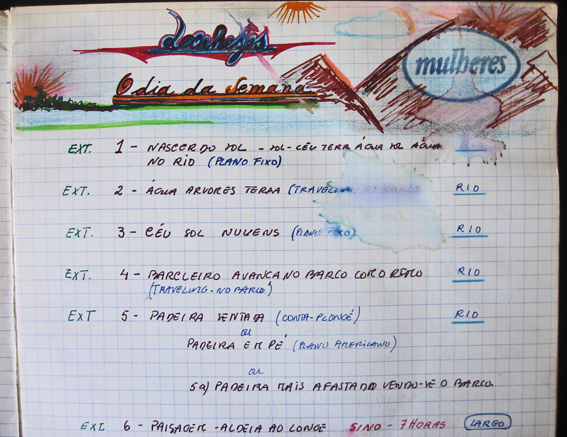 mulheres
O dia da Semana
EXT. 1 - NASCER DO SOL - SOL - CÉU TERRA ÁGUA
NO RIO (PLANO FIXO)
EXT. 2 - ÁGUA ARVORES TERRA RIO
EXT. 3 - CÉU SOL NUVENS RIO
EXT. 4 - BARQUEIRO AVANCA NO BARCO COM O REMO RIO
(TRAVELING - NO BARCO)
EXT 5 - PADEIRA SENTADA (CONTA-PLONGÉ) RIO
OU
PADEIRA EM PÉ (PLANO AMERICANO)
OU
5a) PADEIRA MAIS AFASTADA VENDO-VÊ O BARCO.
EXT. 6 - PAISAGEM - ALDEIA AO LONGE SINO - 7 HORAS LARGO